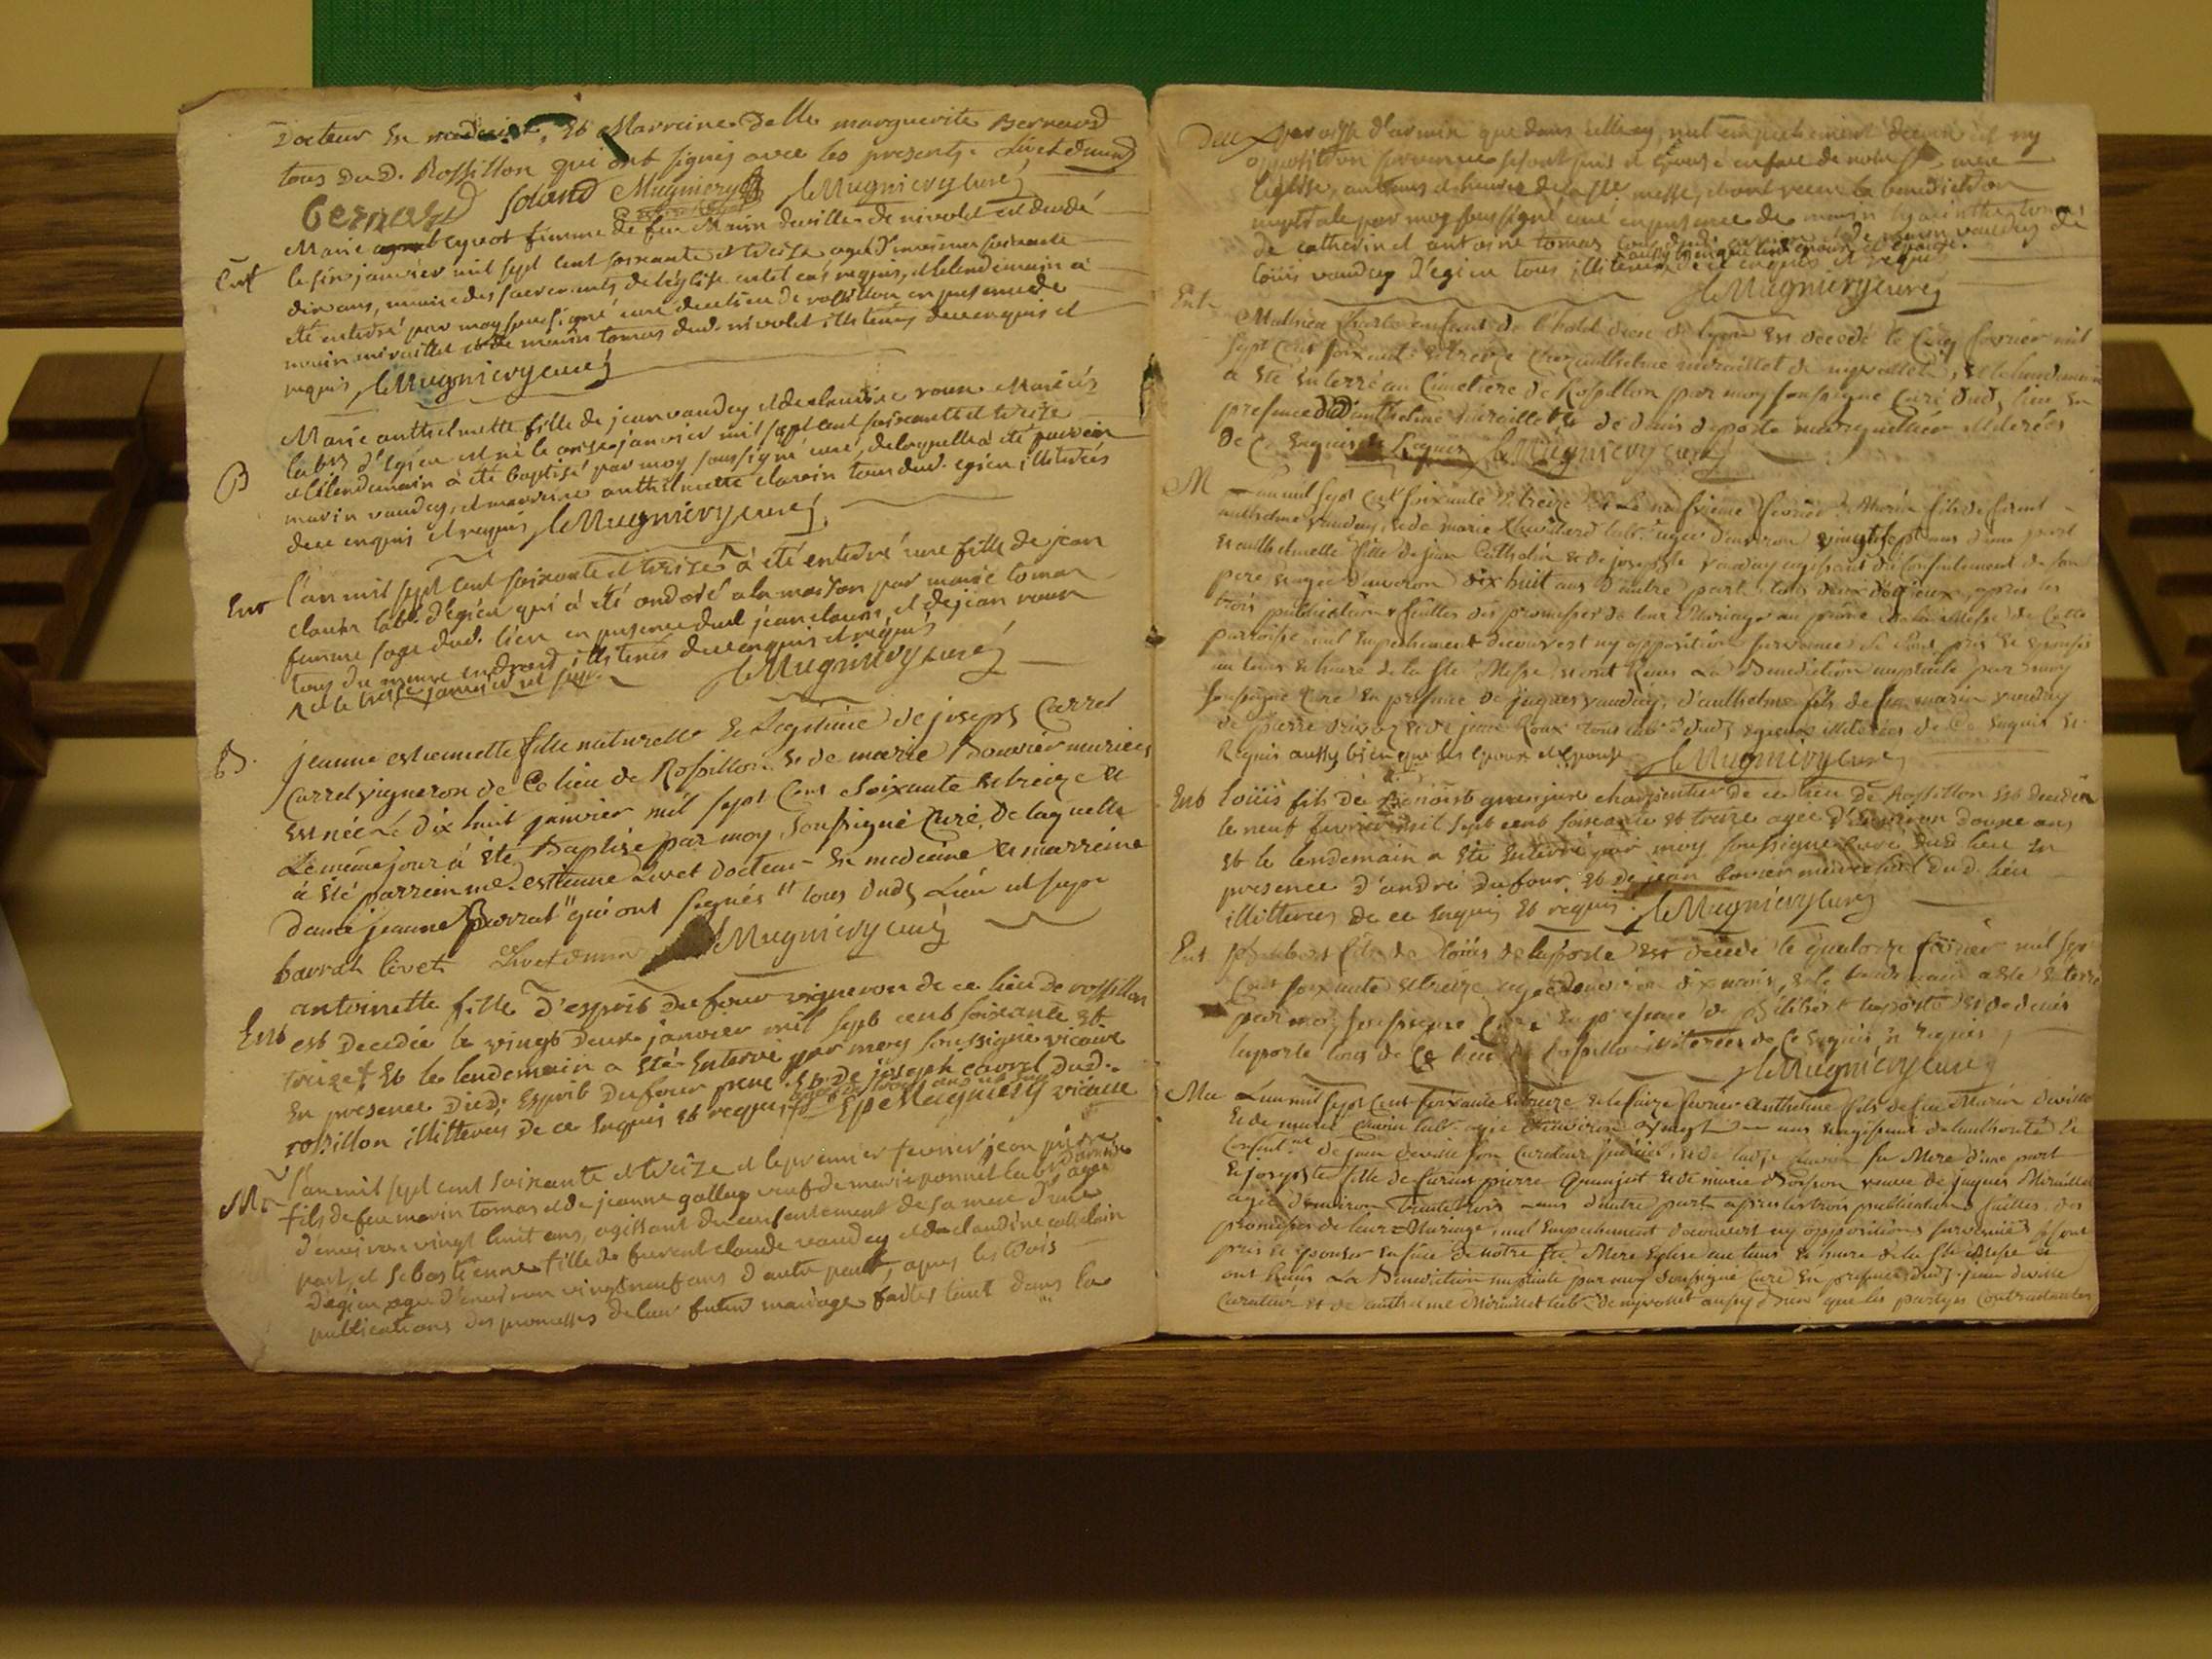 Docteur En medecine, Et Marraine delle marguerite Bernard
tous du d. Rossillon qui ont signés avec les presents. Livet dmm
Bernard Soland Mugniery leMugniery curé
Marie eyvot femme de feu Marin deville de nivolet est decedé
Ent le six janvier mil sept cent soixante et treize agé d'environ soixante
dix ans, munie des sacrements de léglise en tel cas requis, et le lendemain à
été enterré par moy soussigné curé du lieu de rossillon en presence de
marin miraillet et de marin tomas dud. nivolet illiterés de ce enquis et
requis leMugniery curé
Marie anthelmette fille de jean vaudey et de claudine roux Mariés
labrs d'Egieu est né le onze janvier mil sept cent soixante et treize
B et le lendemain à été baptisé par moy soussigné curé, de laquelle à été parrein
marin vaudey, et marreine anthelmette clavin tous dud. egieu illiterés
de ce enquis et requis leMugniery curé
Ent L'an mil sept cent soixante et treize à été enterré une fille de jean
clavin labr. d'Egieu qui à été ondoié a la maison par marie tomas
femme sage dud. lieu en presence dud jean clavin et de jean roux
tous du meme endroit, illiterés de ce enquis et requis
et le treize janvier ut supr. leMugniery curé
B. jeanne estiennette fille naturelle Et Legitime de joseph Carrel
Carrel vigneron de Ce lieu de Rossillon Et de marie Bouvier mariés
Est née Le dix huit janvier mil sept Cent Soixante et treize et
Le même jour à Eté Baptisé par moy Soussigné Curé, De laquelle
à Eté parrein mr. estienne Livet Docteur En medecine Et marreine
dame jeanne Barrat qui ont signés tous dud. Lieu ut supr
barrat livet Livet dmm leMugniery curé
antoinette fille d'esprit Dufour vigneron de ce lieu de rossillon
Ent est Decedée le vingt deux janvier mil sept cent soixante et
treize Et le lendemain a Eté Enterré par moy soussigné vicaire
En presence Dud. Esprit Dufour pere Et de joseph carrel Dud.
rossillon illitterés de ce Enquis et requis Mugniery vicaire
Ma L'an mil sept cent soixante et treize et le premier fevrier jean pierre
fils de feu marin tomas et de jeanne gallay veuf de marie ponnet labr d'armix agé
d'environ vingt huit ans, agissant du consentement de sa mere d'une
part, et sebastienne fille de furent claude vaudey et de claudine cathelain
d'egieu agé d'environ vingt neuf ans d'autre part, apres les trois
publications des promesses de leur futur mariage faites tant dans la
paroisse d'armix que dans celle cy, nul empechement decouvert ny
opposition survenue se sont pris et épousé en face de notre ste. mere
léglise, au tems et heures de la ste messe, et ont recu la benediction
nuptiale par moy soussigné curé en presence de marin hyacinthe tomas
de catherin et antoine tomas et de marin vaudey de
aussy bien que les époux et épouse.
loüis vaudey d'égieu tous illiterés de ce enquis et requis
leMugniery curé
Ent Mathieu Charle enfant de l'hotel dieu de lyon Est decedé le Cinq fevrier mil
sept Cent soixante et treize Chez anthelme miraillet de nyvollet, et le lendemain
a Eté Enterré au Cimetiere de Rossillon par moy soussigné Curé dud. lieu En
presence dud anthelme miraillet et de denis deporte marguillier illiterés
De Ce Enquis et Requis leMugniery curé
M L'an mil sept Cent soixante et treize Et Le neufvieme fevrier Marin fils de furent
anthelme vaudey, et de marie Chevillard labr. agé d'environ vingt sept ans d'une part
et anthelmette fille de jean Cathelin et de josephte vaudey agissant du consentement de son
pere, et agée d'environ dix huit ans d'autre part tous deux d'egieux, après les
trois publications faittes des promesses de leur Mariage au prône de la messe de Cette
parroisse nul Empechement decouvert ny opposition survenue se sont pris et epousés
au tems et heure de la ste Messe et ont Reçus La Benediction nuptiale par moy
soussigné Curé En presence de jaques vaudey, d'anthelme fils de feu marin vaudey
de pierre et de jean Roux tous dud. egieux illiterés de Ce Enquis et
Requis aussy bien que les epoux et Epouse leMugniery curé
Ent loüis fils de Benoist granjux charpentier de ce lieu de Rossillon Est decedé
le neuf fevrier mil sept cent soixante et treize agée d'Environ douze ans
Et le lendemain a Eté Enterré par moy soussigné Curé dud. lieu En
presence d'andré Dufour Et de jean bovier marechal Du d. lieu
illitterés de ce Enquis Et requis. leMugniery curé
Ent fils de loüis de laporte Est decedé le quatorze fevrier mil sept
Cent soixante et treize agé d'environ dix mois, et le lendemain a Eté Enterré
par moy soussigné Curé En presence de Philibert laporte et de denis
laporte tous de Ce lieu de Rossillon illiterés de Ce Enquis et Requis
leMugniery curé
Ma L'an mil sept Cent soixante et treize et le seize fevrier Anthelme fils de feu Marin deville
Et de marie Clavin labr. agé d'environ vingt ans et agissant de l'authorité et
Consentmt de jean deville son Curateur, et de lad. Clavin sa Mere d'une part
Et josephte fille de furent pierre Granjux et de marie veuve de jaques Miraillet
agée d'environ Trente trois ans d'autre part après les trois publications faittes des
promesses de leur Mariage, nul Empechement decouvert ny opposition survenue se sont
pris et epousés En face de notre ste Mere Eglise au tems et heure de la ste Messe et
ont Reçus La Benediction nuptiale par moy soussigné Curé En presence dud. jean deville
Curateur et de anthelme Miraillet labr. de nyvollet aussy bien que les parties Contractantes